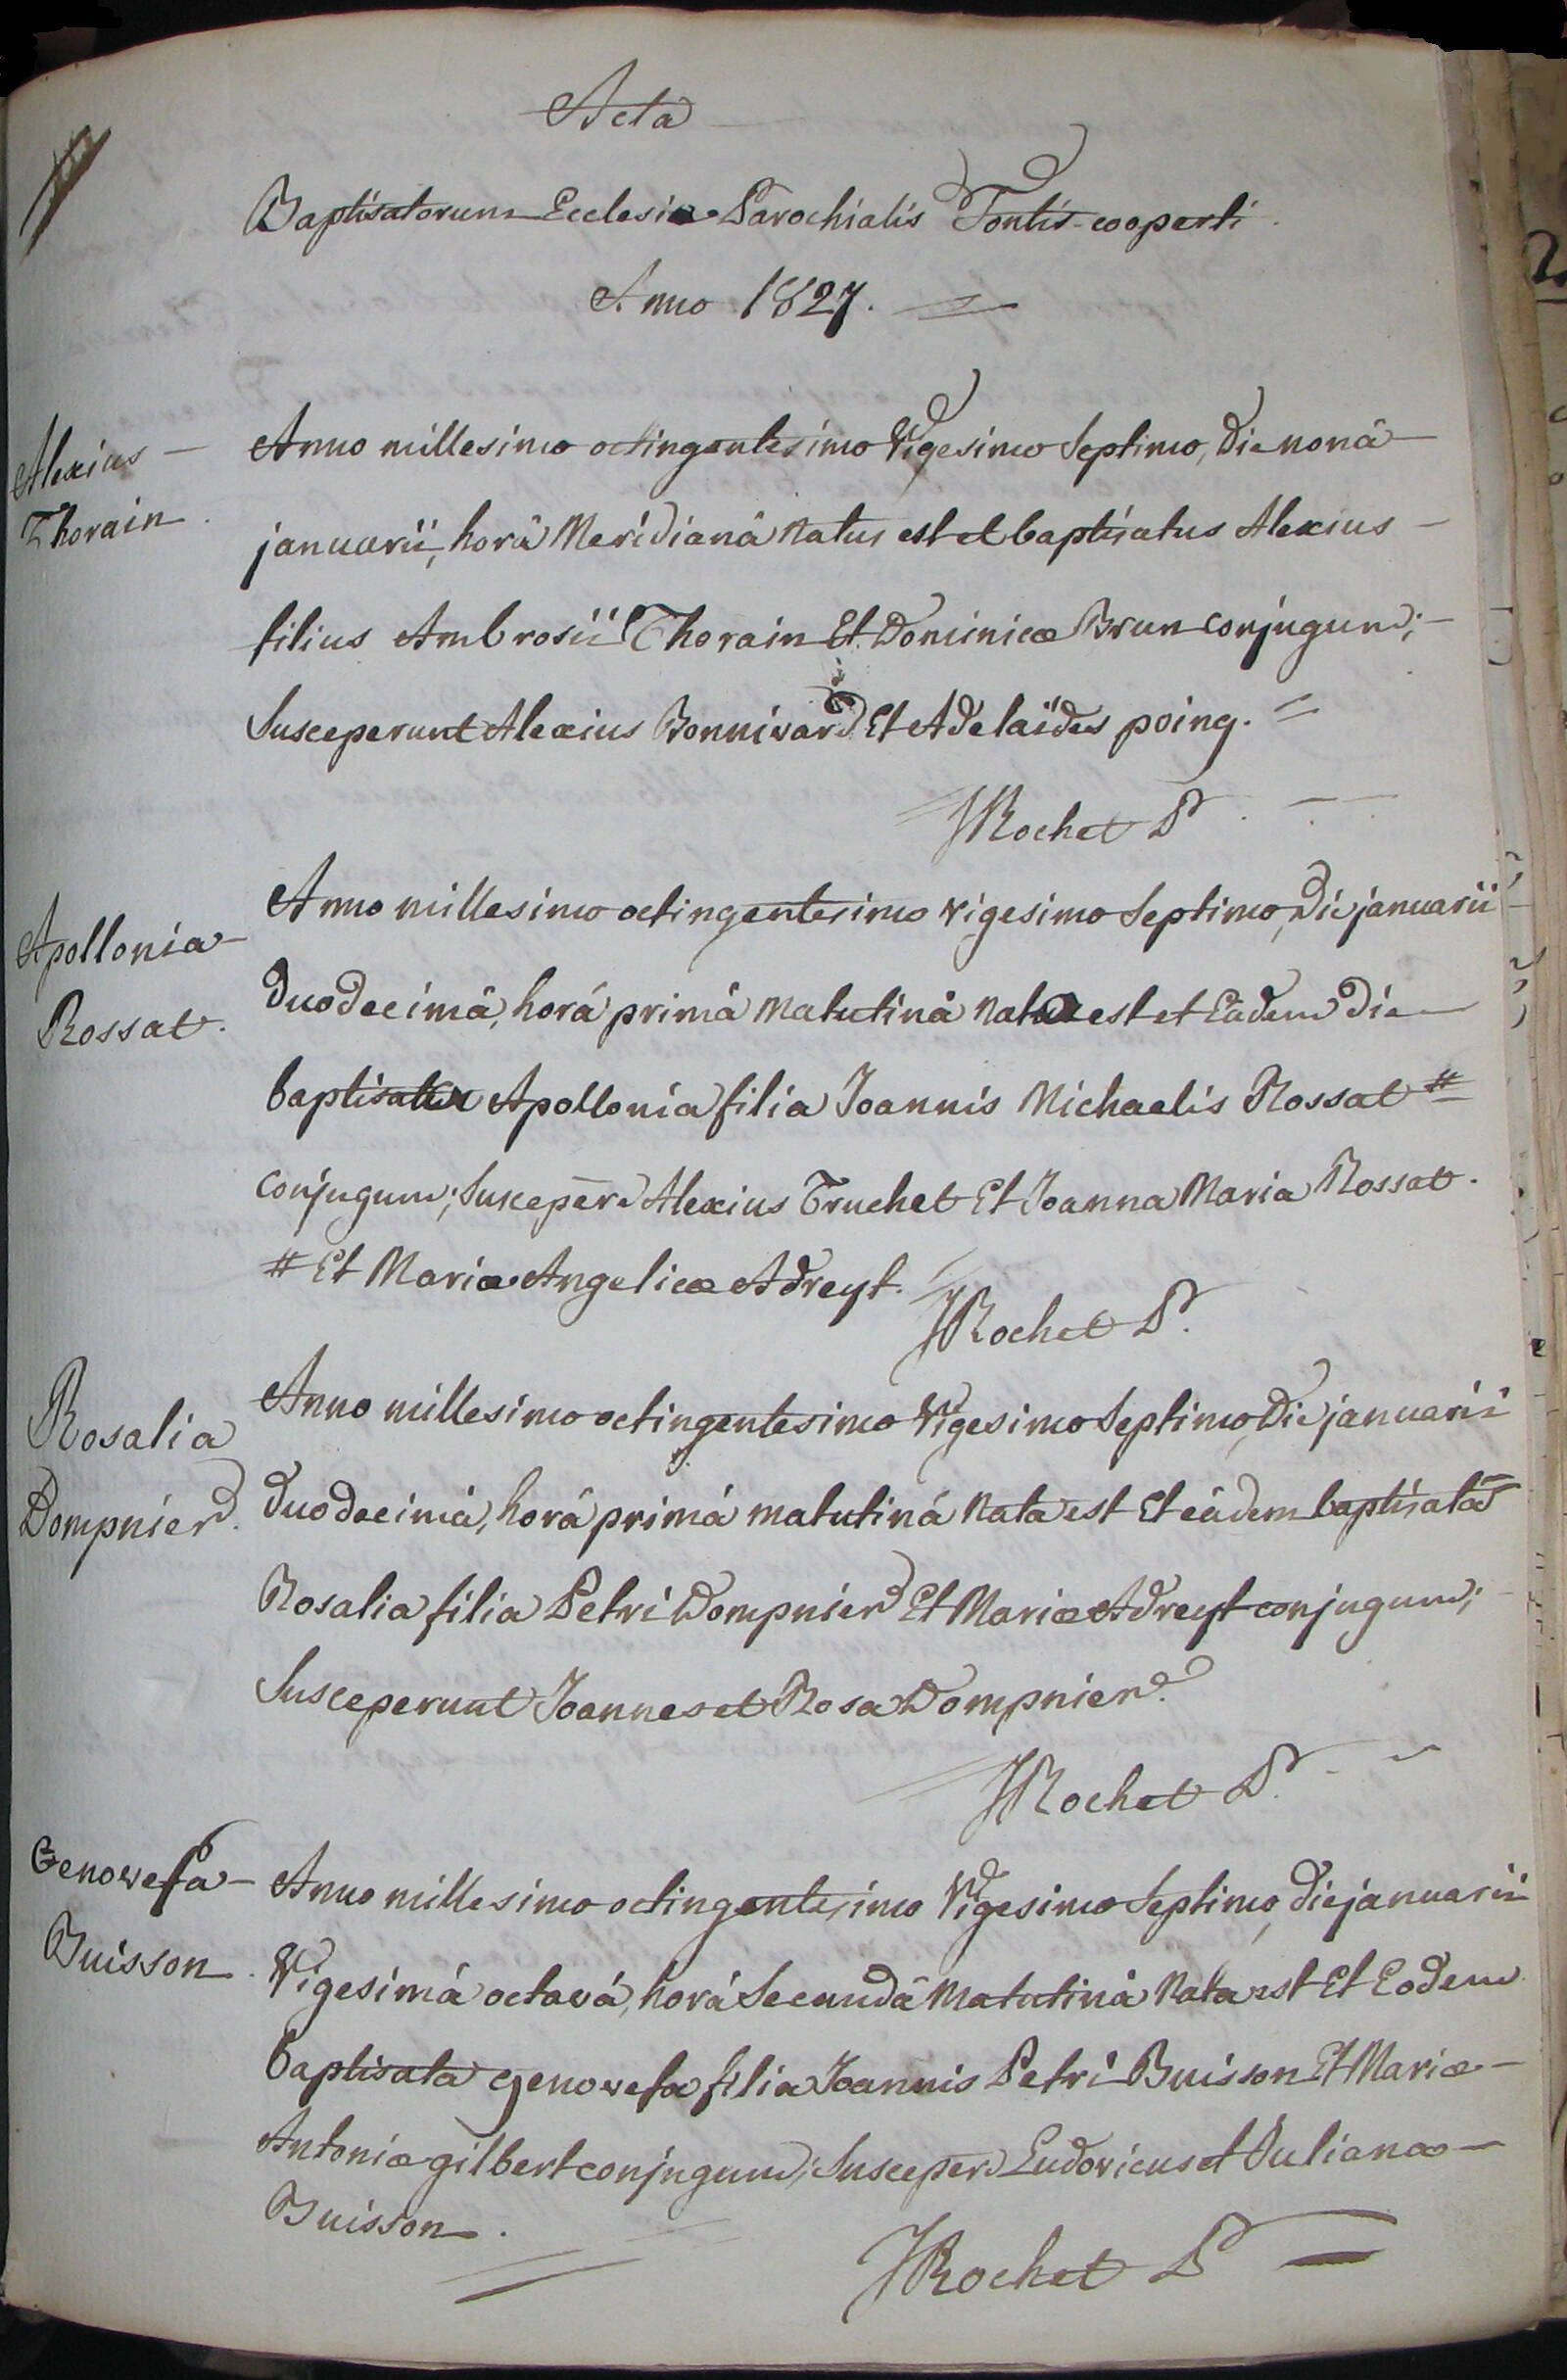 Acta
Baptisatorum Ecclesiæ Parochialis Fontis-cooperti.
Anno 1827.
Alexius
Thorain.
Anno millesimo octingentesimo Vigesimo Septimo, die nonâ
januarii, horâ Meridianâ Natus est et baptisatus Alexius
filius Ambrosii Thorain Et Dominicæ Brun conjugum;
Susceperunt Alexius Bonnivard Et Adelaïdes poing.
JRochet P
Apollonia
Rossat.
Anno millesimo octingentesimo vigesimo Septimo, Die januarii
Duodecimâ, horâ primâ Matutinâ Nata est et Eâdem Die
baptisata Apollonia filia Joannis Michaelis Rossat #
conjugum; Suscepēr Alexius Truchet Et Joanna Maria Rossat.
# Et Mariæ Angelicæ Adreyt.
JRochet P.
Rosalia
Dompnier.
Anno millesimo octingentesimo Vigesimo Septimo, Die januarii
Duodecimá, horâ primá matutiná Nata est Et eâdem baptisata
Rosalia filia Petri Dompnier Et Mariæ Adreyt conjugum;
Susceperunt Joannes et Rosa Dompnier.
JRochet P.
Genowefa
Buisson.
Anno millesimo octingentesimo Vigesimo Septimo, die januarii
Vigesimá octavá, horá Secundâ Matutinâ Nata est Et Eodem
baptisata genowefa filia Joannis Petri Buisson Et Mariæ
Antoniæ gilbert conjugum; Suscepēr Ludovicus et Juliana
Buisson.
JRochet P